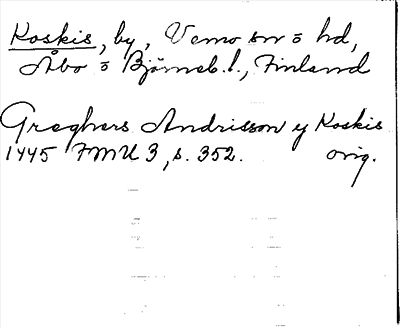 Koskis, by, Vemo sn o hd,
Åbo o Björneb. l., Finland
Greghers Andrisson y Koskis
1445 FMU 3, s. 352. orig.